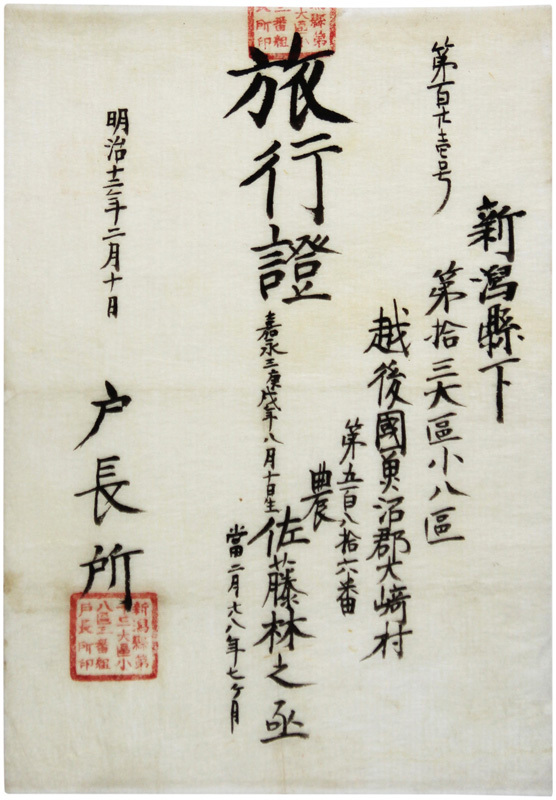 新潟縣下
第百廿壱号
第拾三大區小八區
越後國魚沼郡大﨑村
第五百八拾六番
農
旅行證
嘉永三庚戌年八月十日生
佐藤林之亟
當二月廿八年七ヶ月
明治十二年二月十日
戸長所
新潟縣第
十三大區小
八區二番組
戸長所印
縣第
大區小
二番組
長所印